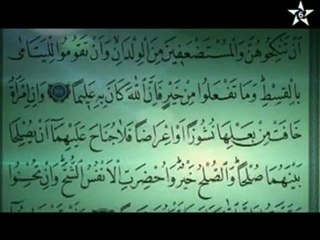 أَن تَنكِحُوهُنَّ وَالْمُسْتَضْعَفِينَ مِنَ الْوِلْدَانِ وَأَن تَقُومُوا لِلْيَتَامَىٰ
بِالْقِسْطِ وَمَا تَفْعَلُوا مِنْ خَيْرٍ فَإِنَّ اللَّهَ كَانَ بِهِ عَلِيمًا وَإِنِ امْرَأَةٌ
خَافَتْ مِن بَعْلِهَا نُشُوزًا أَوْ إِعْرَاضًا فَلَا جُنَاحَ عَلَيْهِمَا أَن يُصْلِحَا
بَيْنَهُمَا صُلْحًا وَالصُّلْحُ خَيْرٌ وَأُحْضِرَتِ الْأَنفُسُ الشُّحَّ وَإِن تُحْسِنُوا
6